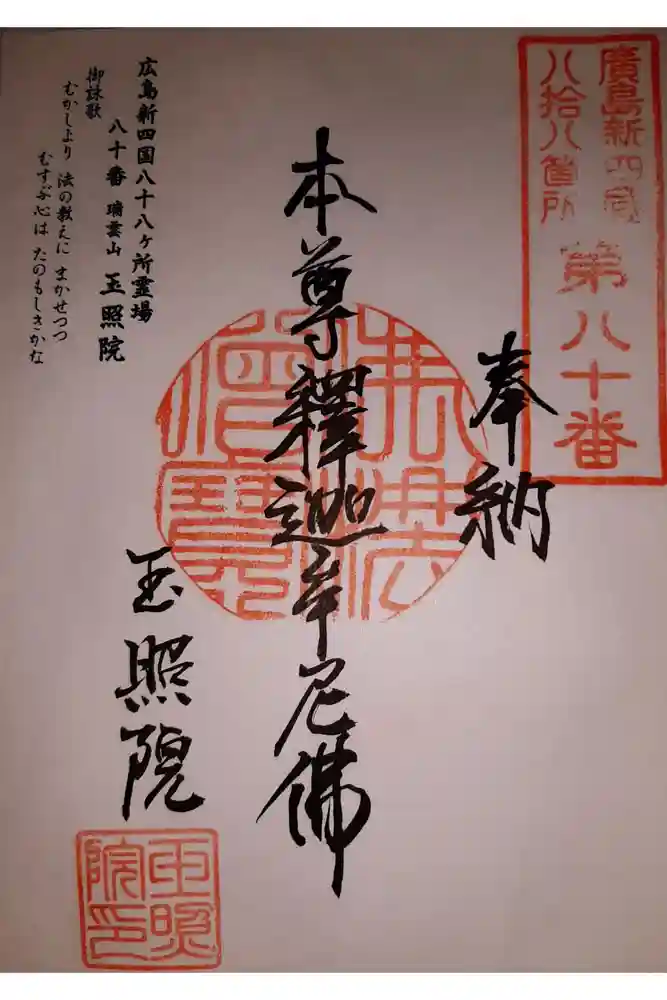 廣島新四國
八拾八箇所
第八十番
奉納
本尊釋迦牟尼佛
佛法僧寶
玉照院
玉照院印
広島新四国八十八ヶ所霊場
八十番 瑞雲山 玉照院
御詠歌
むかしより 法の教えに まかせつつ
むすぶ心は たのもしきかな